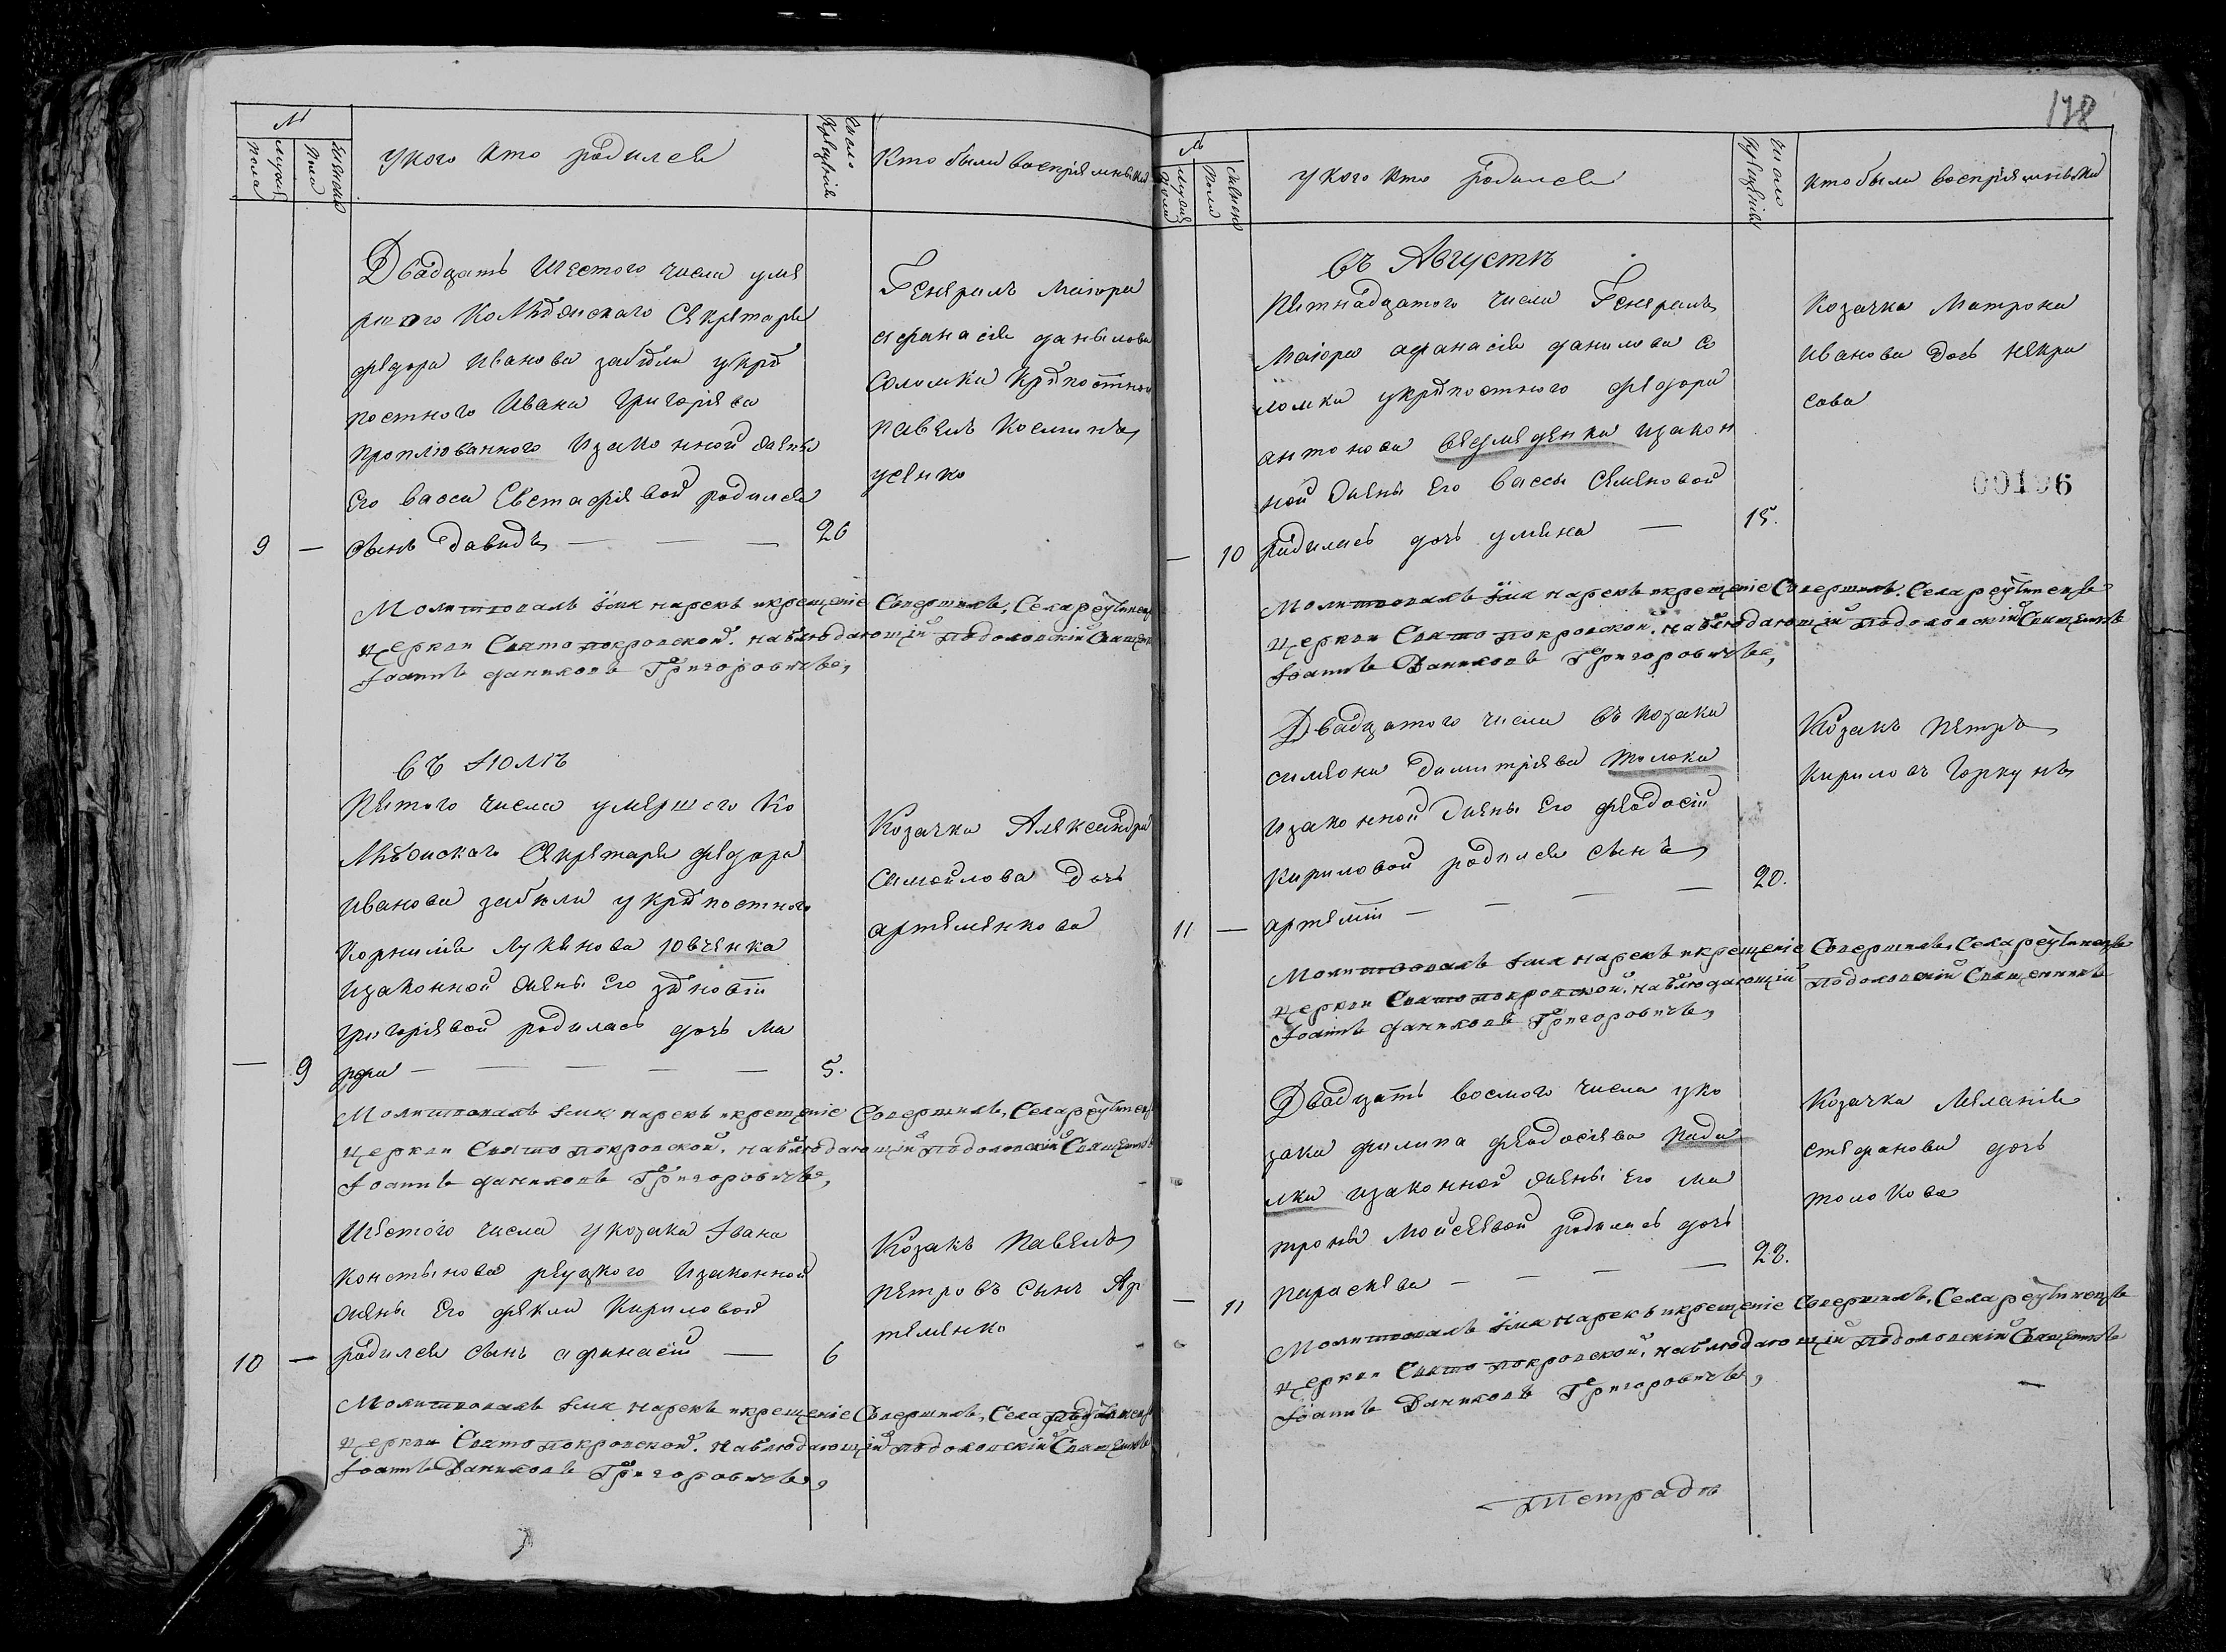 №
мужеска
пола
женска
пола
У кого кто родился
Число
крещенія
Кто были воспріямники
Двадцать шестого числа уме
ршого Колѣжскаго Секрѣтаря
федора Иванова забѣли укрѣ
постного Ивана Григоріева
проплюванного изаконной жены
Его васси Евстафіевой родился
9 — сынъ давидъ — — — 26
Генералъ маіора
афанасія данылова
Соломки крѣпостной
павелъ косминъ
усенко
Молитвовалъ имя нарекъ икрещеніе Совершилъ, Села реутинець
церкви Святопокровской. наблюдающій подоловскій Священ
Іоаннъ даниловъ Григоровичъ,
въ Юлѣ
Пятого числа умершего Ко
лѣжского Секрѣтаря федора
Иванова забѣли укрѣпостного
корнилія Лукянова Ювченка
изаконной жены Его зѣновіи
григоріевой родилась дочь ма
— 9 рфа — — — — — 5.
Козачка Александра
Самойлова дочь
артеменкова
Молитвовалъ имя нарекъ икрещеніе Совершилъ, Села реутинець
церкви Святопокровской. наблюдающій подоловскій Священикъ
Іоаннъ даниловъ Григоровичъ,
Шестого числа укозака Івана
констынова реуцкого изаконной
жены Его феклы Кириловой
10 — родился сынъ афанасій — 6
Козакъ Павелъ
петровъ сынъ Ар
теменко
Молитвовалъ имя нарекъ икрещеніе Совершилъ, Села реутинець
церкви Святопокровской. наблюдающій подоловскій Священикъ
Іоаннъ Даниловъ Григоровичъ,
178
№
мужска
пола
женска
пола
У кого кто родился
Число
крещенія
кто были воспріямники
въ Августѣ
Пятнадцатого числа Генералъ
маіора афанасія данилова Со
ломки укрѣпостного федора
антонова ведмеденка изакон
ной жены Его вассы Семеновой
— 10 родилась дочь уляна — 15.
Козачка Матрона
Иванова дочь некра
сова
00196
Молитвовалъ имя нарекъ икрещеніе Совершилъ. Села реутинець
церкви Святопокровской. наблюдающій подоловскій Священикъ
Іоаннъ Даниловъ Григоровичъ,
Двадцатого числа въ козака
симеона димитріева толока
изаконной жены Его феодосіи
Кириловой родился сынъ
11 — артемій — — — — 20.
Козакъ петръ
кириловъ Горкунъ
Молитвовалъ имя нарекъ икрещеніе Совершилъ, Села реутинець
церкви Святопокровской. наблюдающій подоловскій Священникъ
Іоаннъ даниловъ Григоровичъ,
Двадцать восмого числа уко
зака филипа феодосіева пада
лки изаконной жены Его ма
троны Мойсеевой родилась дочь
— 11 параскева — — — — 28.
Козачка Меланія
стефанова дочь
толокова
Молитвовалъ имя нарекъ икрещеніе Совершилъ, Села реутинець
церкви Святопокровской, наблюдающій подоловскій Священикъ
Іоаннъ Даниловъ Григоровичъ,
Тетрадь